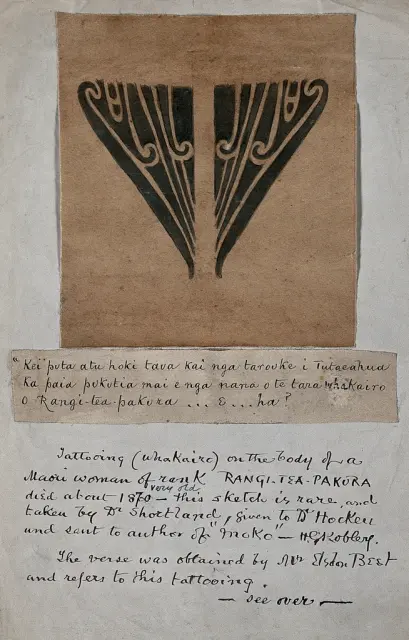 "Kei puta atu hoki taua kai nga tarouke i Tutaeahua
ka paia pukutia mai e nga nana o te tara whakairo
o Rangi-tea-pakura ... e ... ha?
Tattooing (whakairo) on the body of a
Maori woman of rank RANGI-TEA-PAKURA
very old
died about 1870 – this sketch is rare, and
taken by Dr Shortland, given to Dr Hocken
and sent to author of "Moko" – H.G. Robley.
The verse was obtained by Mr Elsdon BEST
and refers to this tattooing.
– see over –